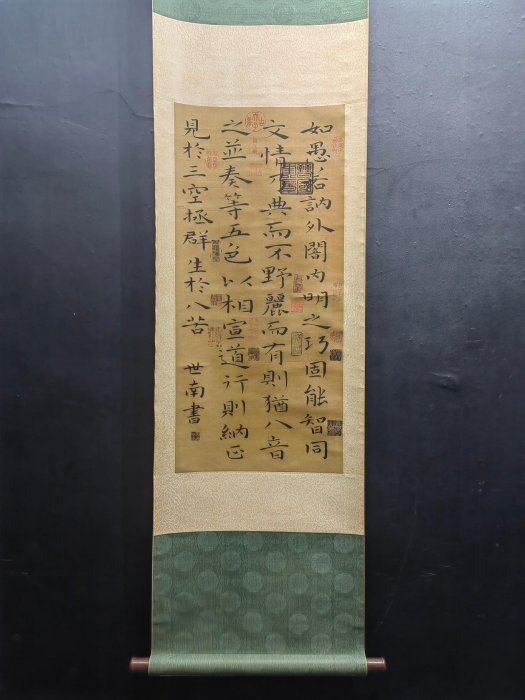 如愚若訥外闇內明之巧固能智同
文情不典而不野麗而有則猶八音
之並奏等五色以相宣道行則納正
見於三空拯群生於八苦
世南書